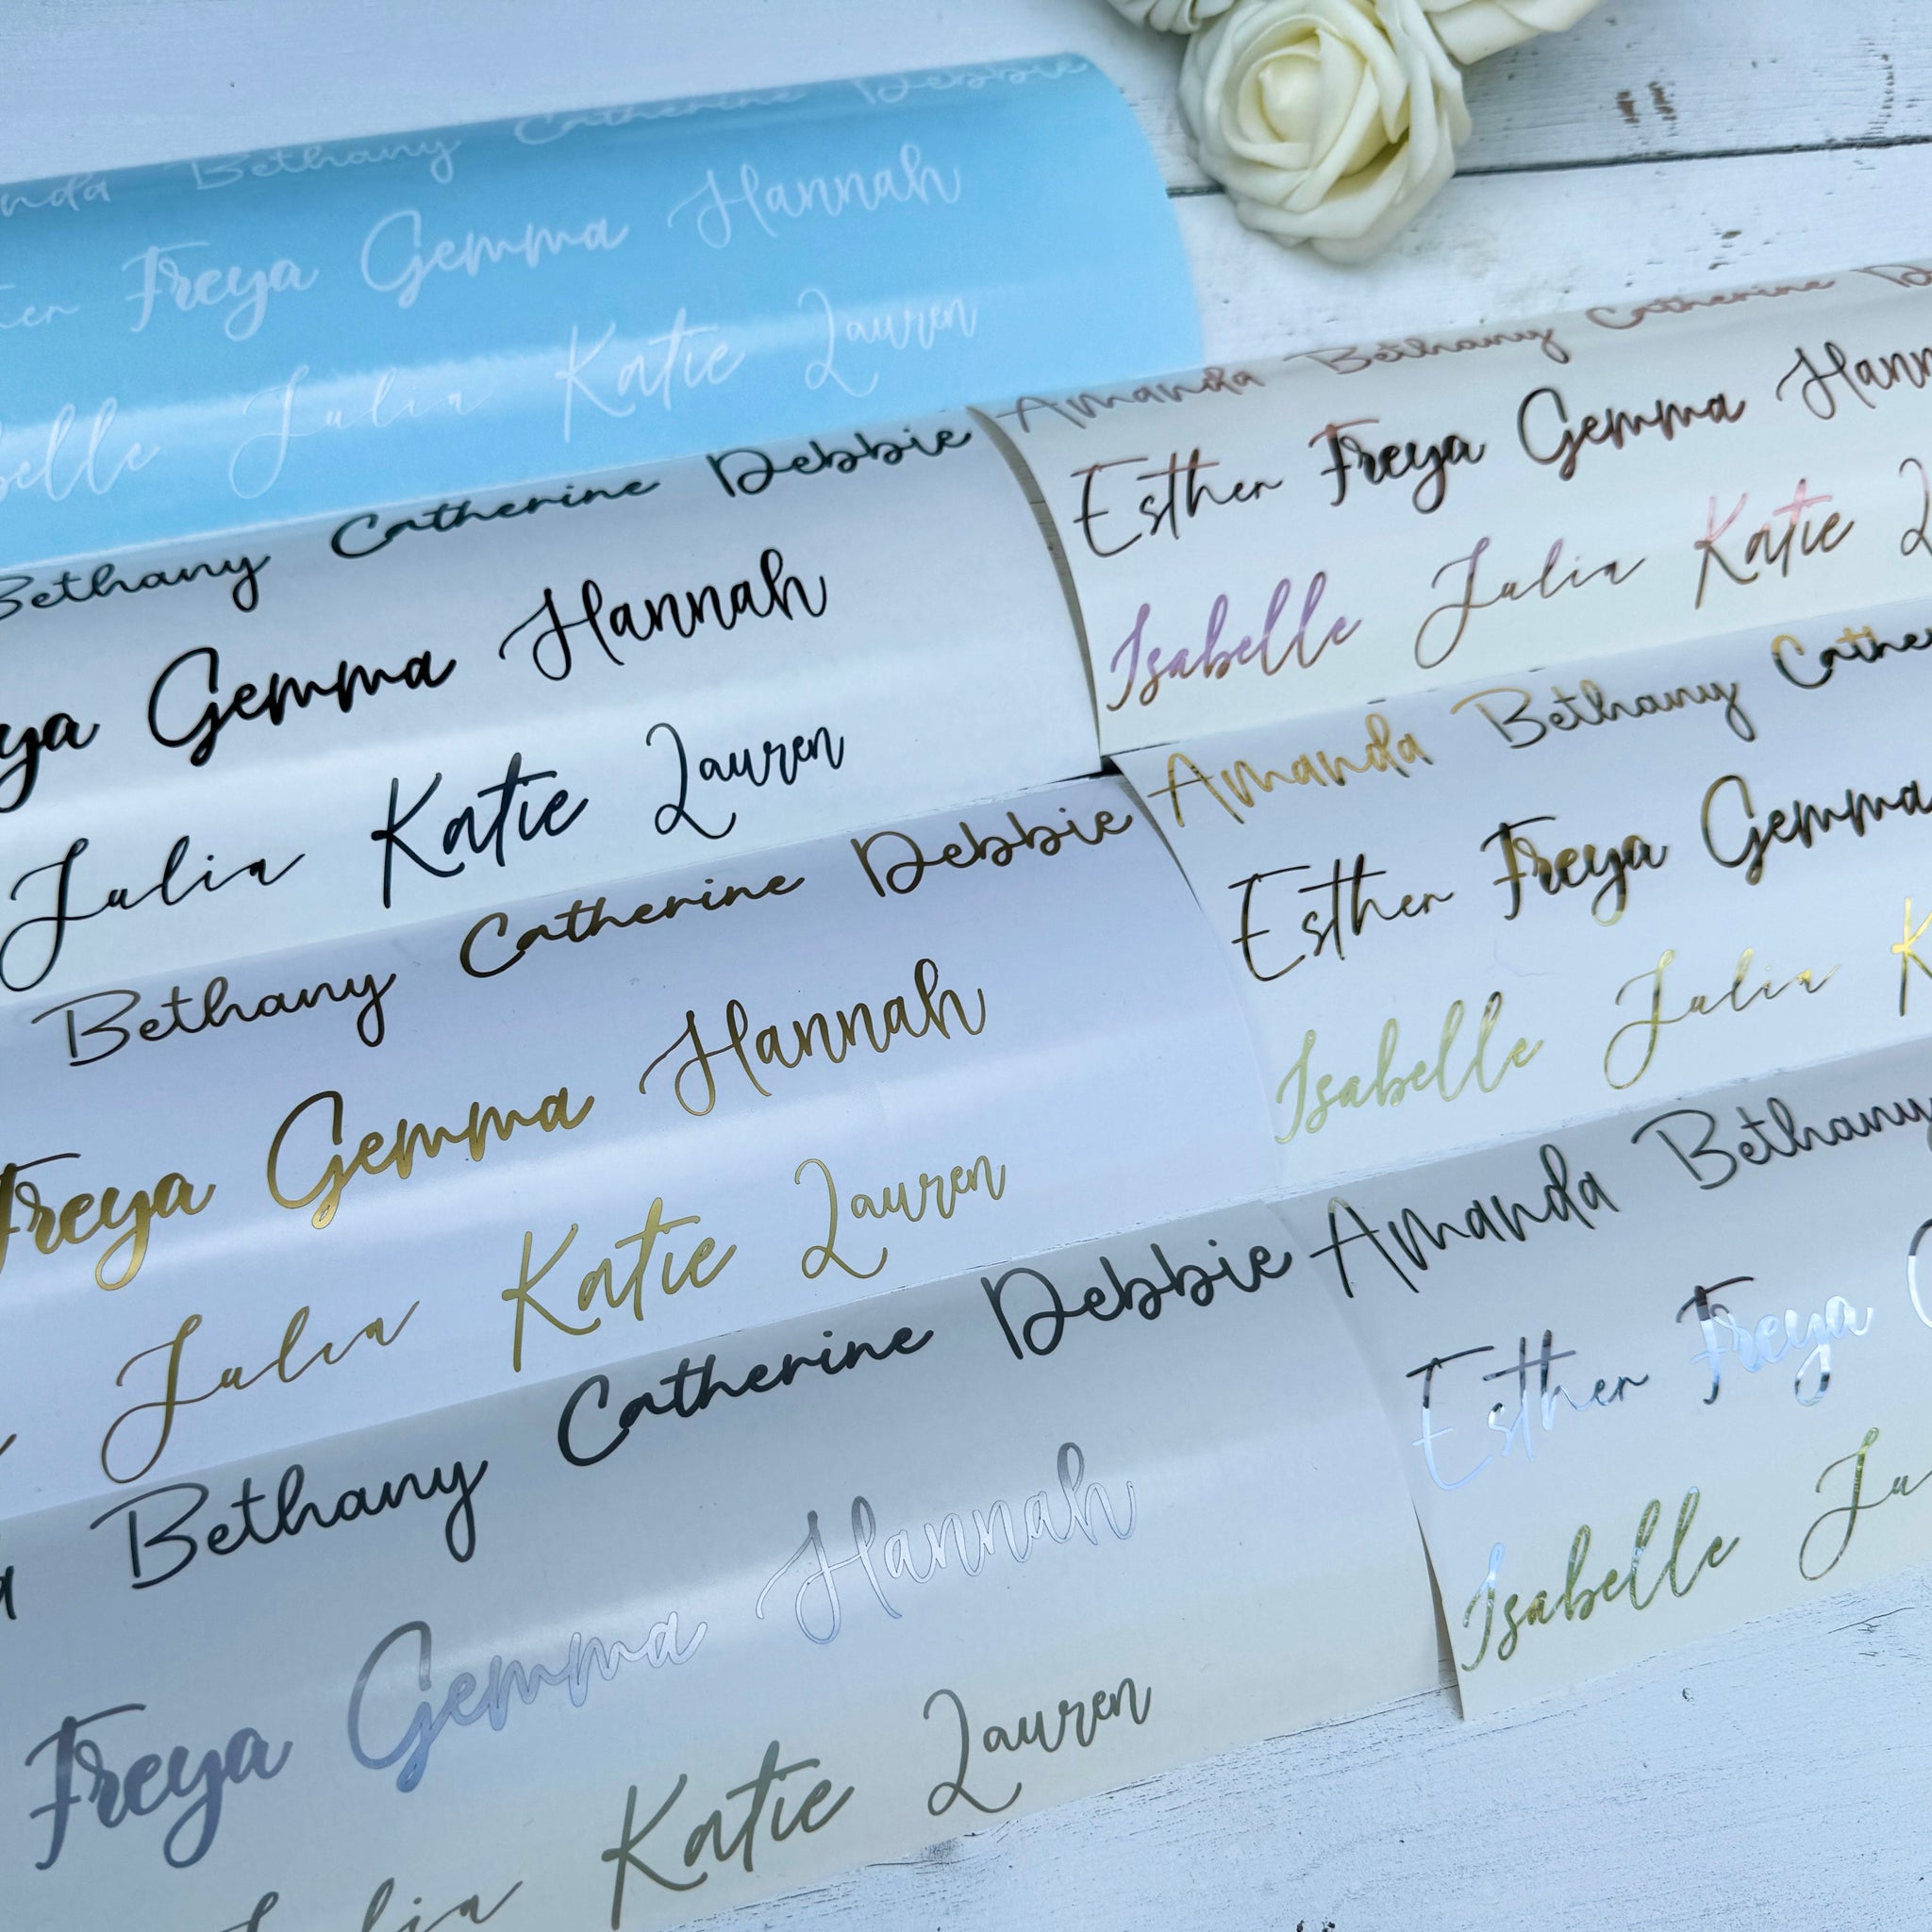 Bethany Catherine Debbie
Freya Gemma Hannah
Julia Katie Lauren
Bethany Catherine Debbie
Gemma Hannah
Julia Katie Lauren
Bethany Catherine Debbie
Freya Gemma Hannah
Julia Katie Lauren
Bethany Catherine Debbie
Freya Gemma Hannah
Julia Katie Lauren
Amanda Bethany Catherine
Esther Freya Gemma Hann
Isabelle Julia Katie
Amanda Bethany Cathe
Esther Freya Gemma
Isabelle Julia K
Amanda Bethany
Esther Freya
Isabelle Ju